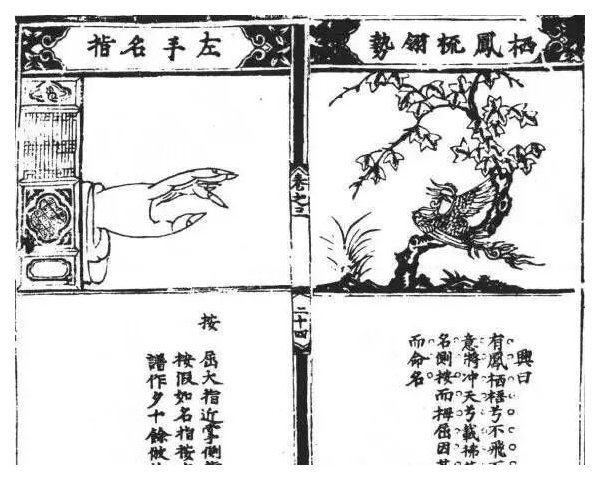 栖鳳梳翎勢
興曰
有鳳栖梧兮不飛
意將冲天兮載拂
名側按而拇屈因其
而命名
卷之三
二十四
左手名指
按
屈大指近掌側
按假如名指按
譜作夕十餘倣